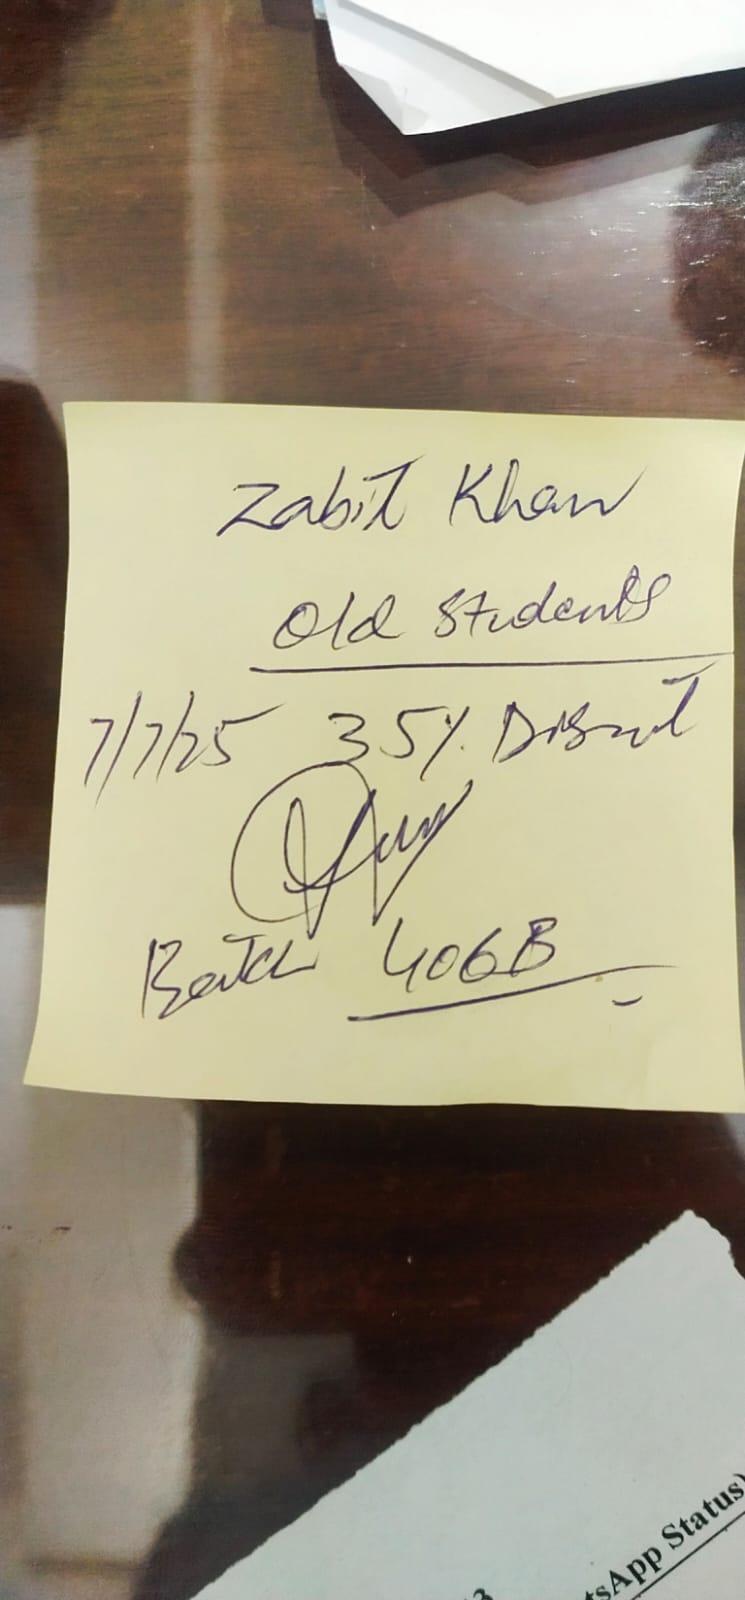 Zabit Khan
Old Students
7/7/25 35% Discount
Batch 406B
tsApp Status)